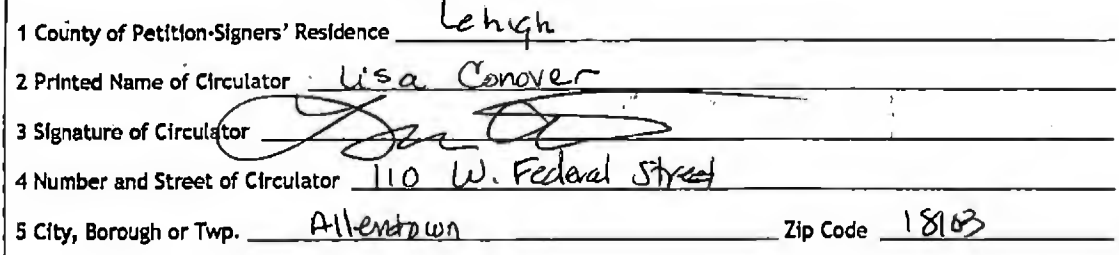 1 County of Petition-Signers' Residence Lehigh
2 Printed Name of Circulator Lisa Conover
3 Signature of Circulator
4 Number and Street of Circulator 110 W. Federal Street
5 City, Borough or Twp. Allentown Zip Code 18103